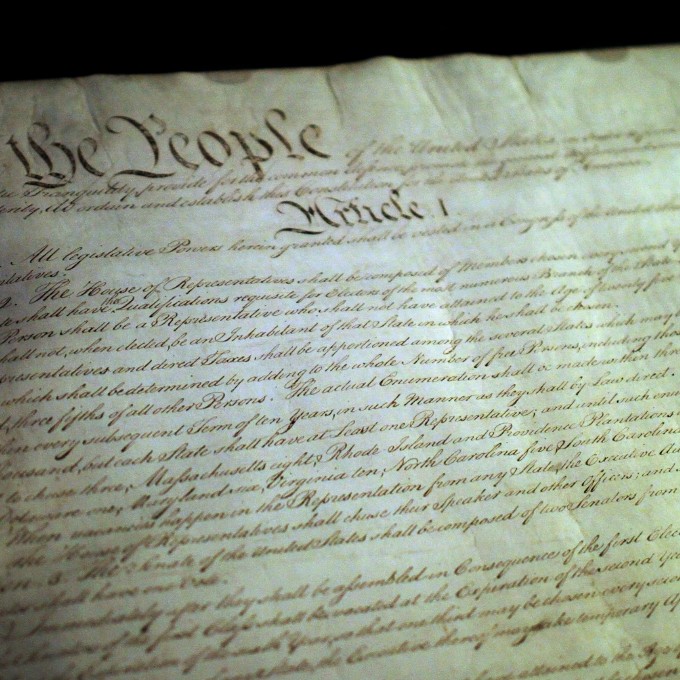 the People of the United States
Tranquility, provide for the common
ordain and establish this Constitution for
Article. I
All legislative Powers herein granted shall be vested in a Congress of the United
The House of Representatives shall be composed of Members chosen
shall have the Qualifications requisite for Electors of the most numerous Branch of the State
Person shall be a Representative who shall not have attained to the Age of twenty five
shall not, when elected, be an Inhabitant of that State in which he shall be chosen.
and direct Taxes shall be apportioned among the several States which may
which shall be determined by adding to the whole Number of free Persons, including those
three fifths of all other Persons. The actual Enumeration shall be made within three
every subsequent Term of ten Years, in such Manner as they shall by Law direct.
but each State shall have at Least one Representative; and until such
to chuse three, Massachusetts eight, Rhode Island and Providence Plantations
one, Maryland six, Virginia ten, North Carolina five, South Carolina
When vacancies happen in the Representation from any State, the Executive
the House of Representatives shall chuse their Speaker and other Officers; and
3. The Senate of the United States shall be composed of two Senators from
shall have one Vote.
Immediately after they shall be assembled in Consequence of the first
of the first Class shall be vacated at the Expiration of the second
Year, so that one third may be chosen every second
State, the Executive thereof may make temporary
attained to the Age